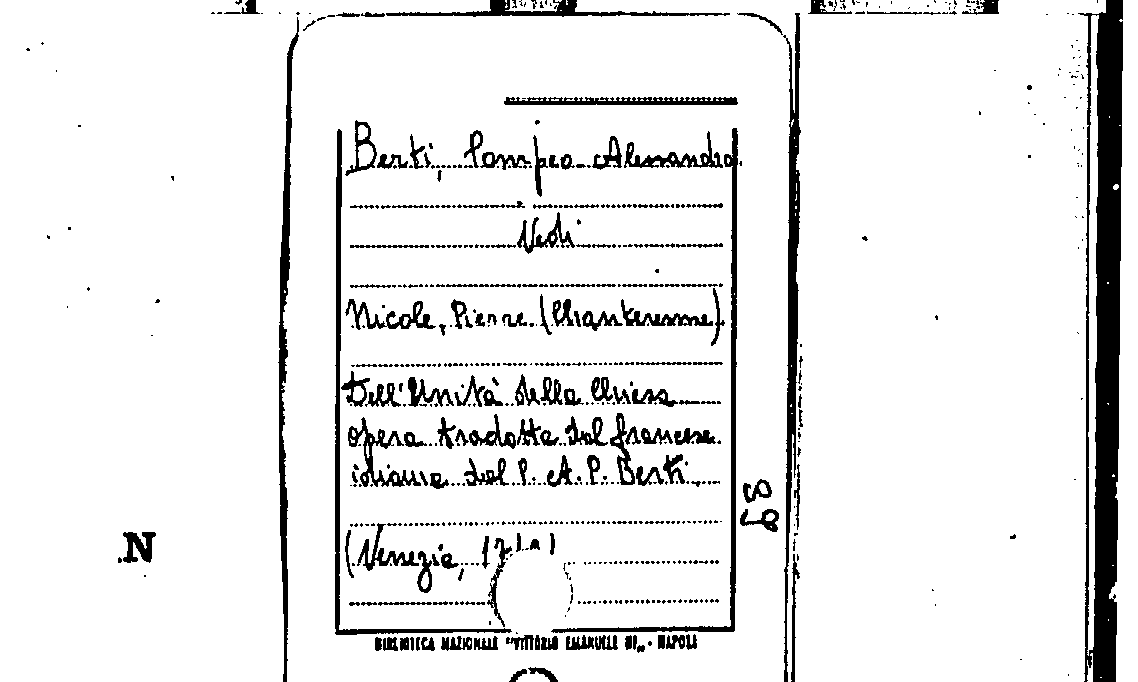 Berti, Pompeo Alessandro.
Vedi
Nicole, Pierre (Chanteresme).
Dell'Unità della Chiesa
opera tradotta dal francese
idioma dal P. A. P. Berti.
(Venezia,
89
N
BIBLIOTECA NAZIONALE "VITTORIO EMANUELE III„ - NAPOLI